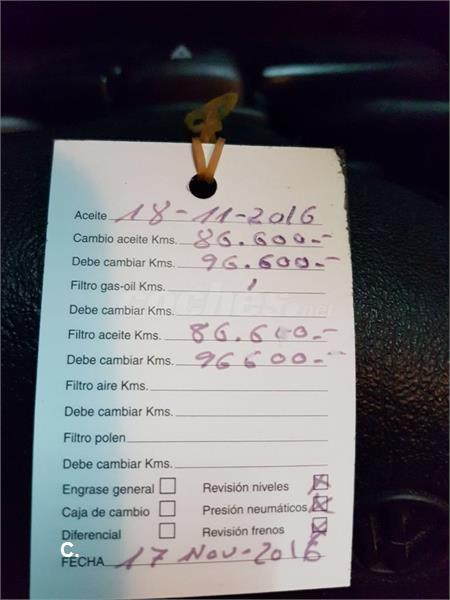 Aceite 18-11-2016
Cambio aceite Kms. 86.600.-
Debe cambiar Kms. 96.600.-
Filtro gas-oil
coches.net
Debe cambiar Kms.
Filtro aceite Kms. 86.600.-
Debe cambiar Kms. 96600.-
Filtro aire Kms.
Debe cambiar Kms.
Filtro polen
Debe cambiar Kms.
Engrase general Revisión niveles
Caja de cambio Presión neumáticos
Diferencial Revisión frenos
C.
FECHA 17 Nov-2016